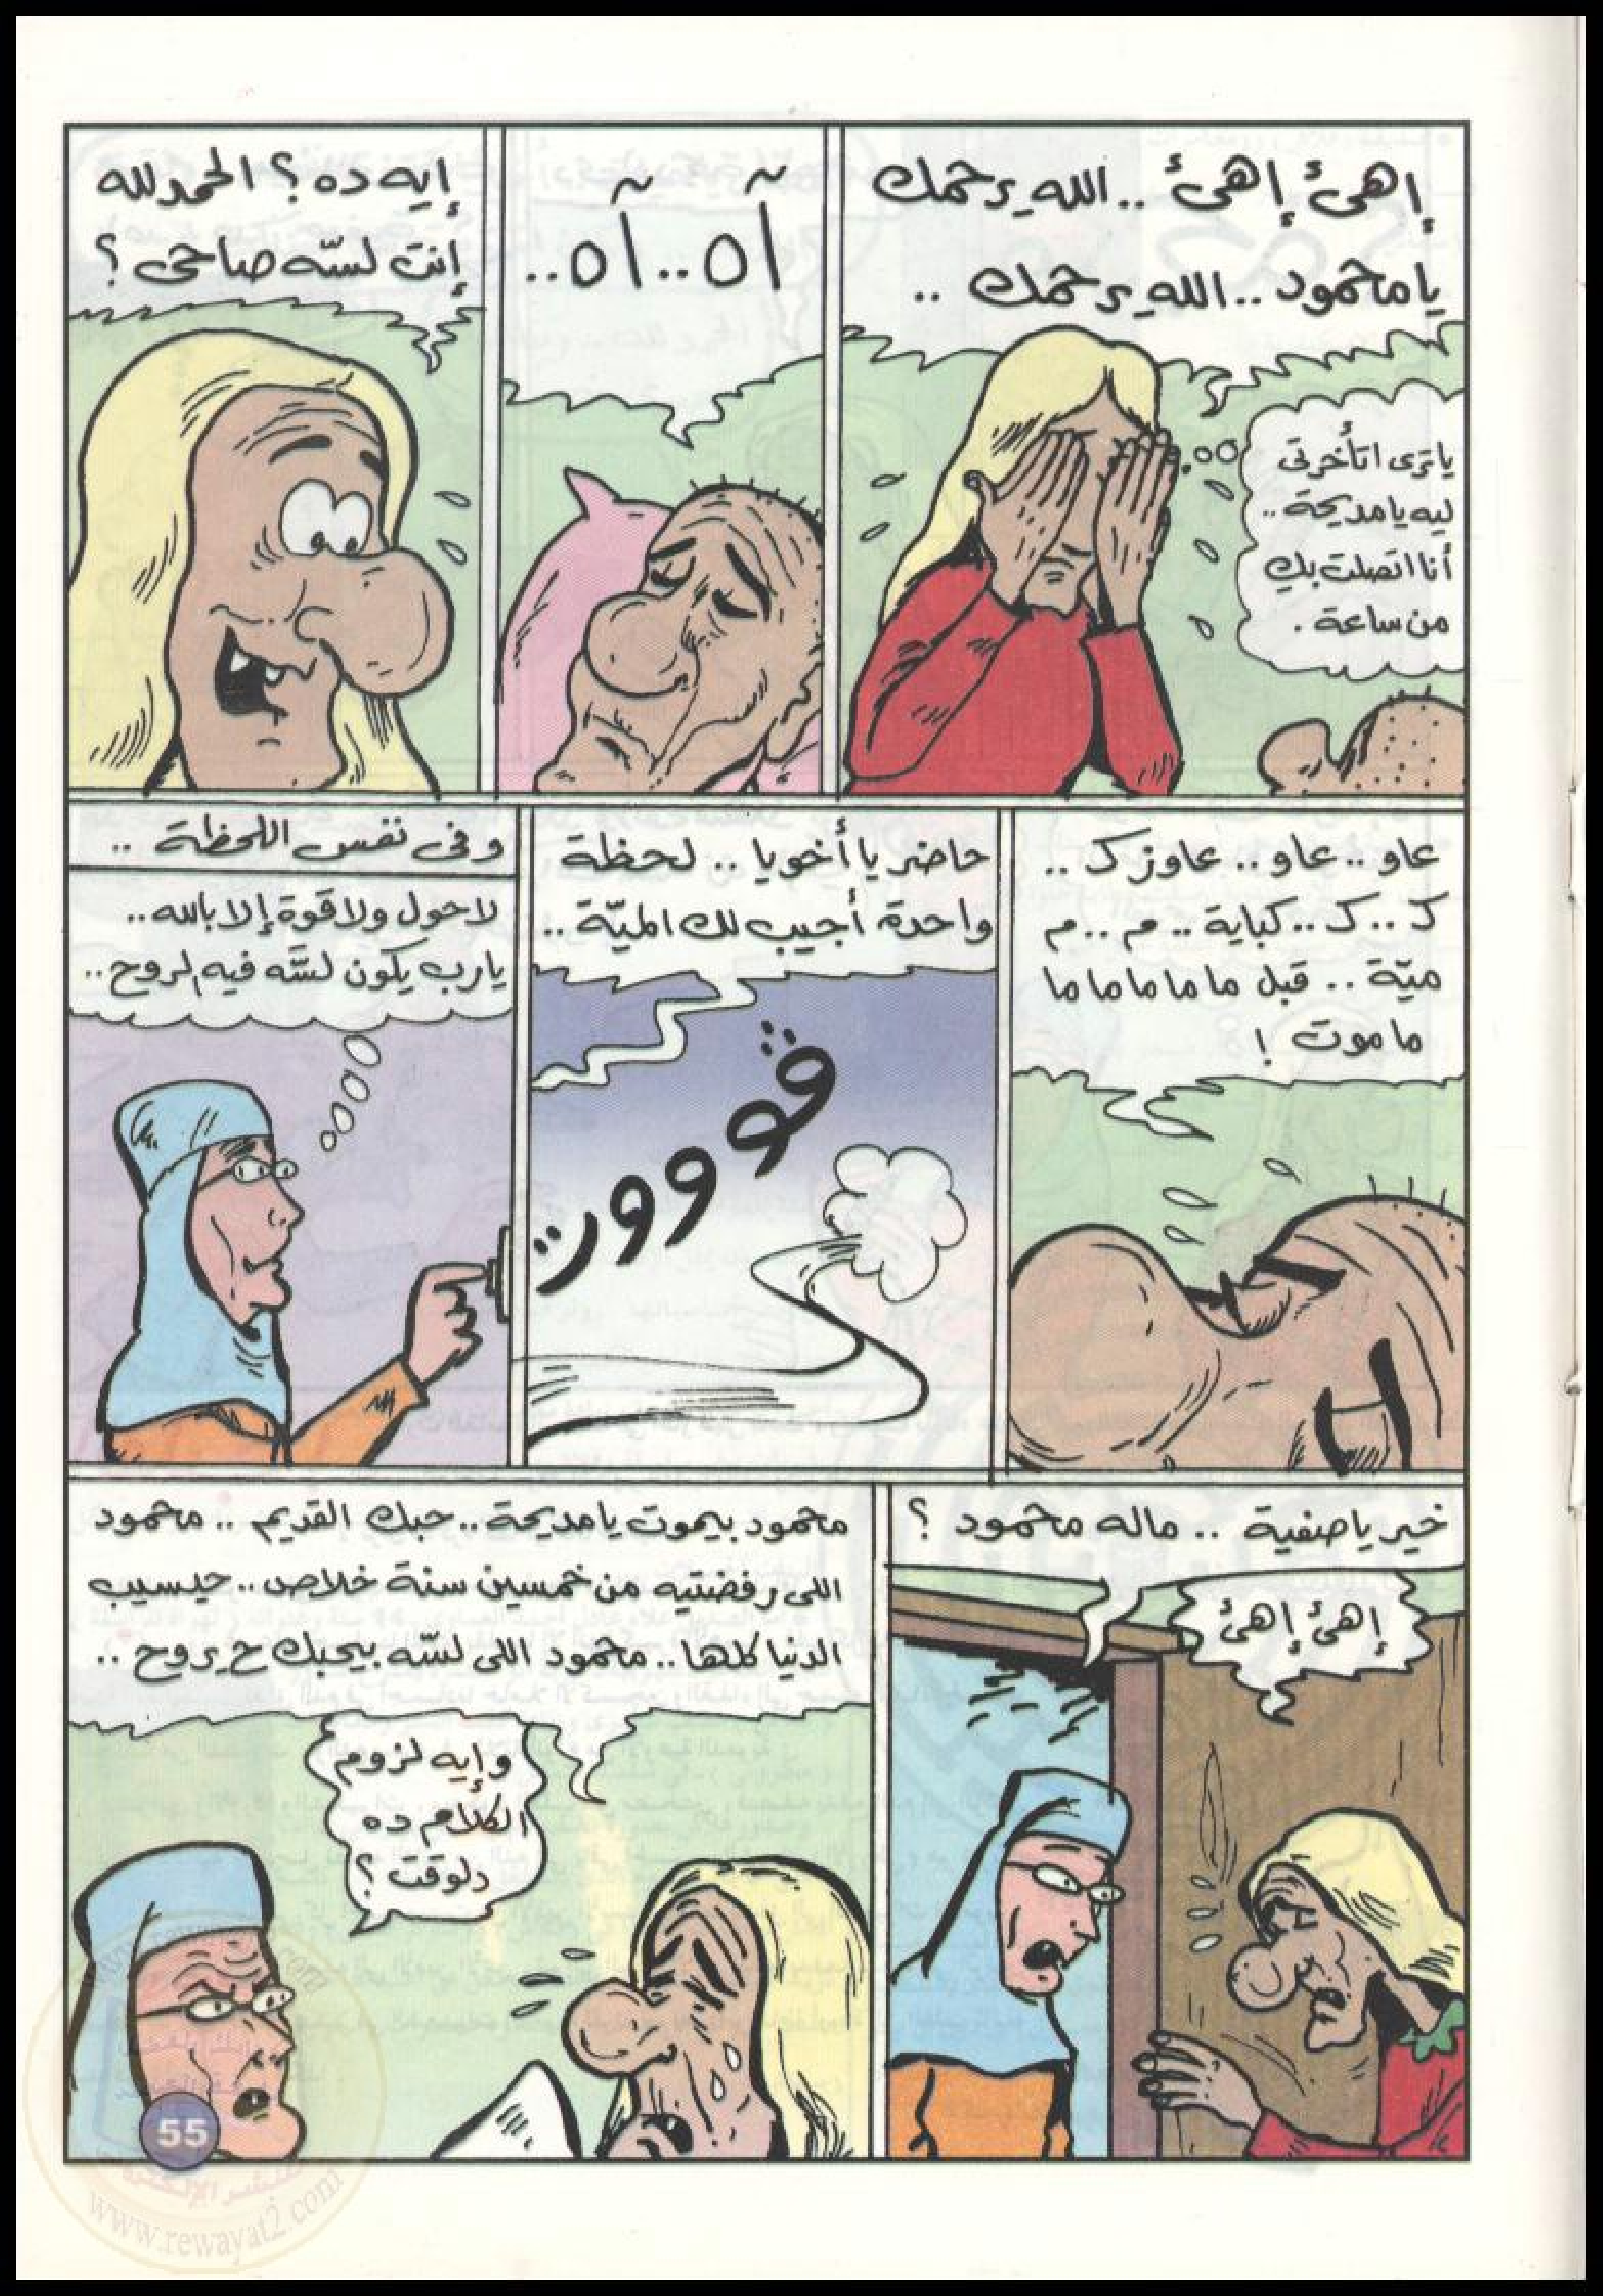 إهئ إهئ .. الله يرحمك
يا محمود .. الله يرحمك ..
يا ترى اتأخرتى
ليه يا مديحة ..
أنا اتصلت بكِ
من ساعة .
آه .. آه ..
إيه ده ؟ الحمد لله
إنت لسّه صاحى ؟
عاو .. عاو .. عاوز ك ..
ك .. ك .. كباية .. م .. م
ميّة .. قبل ما ما ما ما ما
ما موت !
حاضر يا أخويا .. لحظة
واحدة أجيب لك الميّة ..
ڤوووور..
وفى نفس اللحظة ..
لا حول ولا قوة إلا بالله ..
يارب يكون لسَّه فيه لروح ..
خير يا صفية .. ماله محمود ؟
إهئ إهئ
محمود بيموت يا مديحة .. حبك القديم .. محمود
اللى رفضتيه من خمسين سنة خلاص .. حيسيب
الدنيا كلها .. محمود اللى لسّه بيحبك ح يروح ..
وإيه لزوم
الكلام ده
دلوقت ؟
55
www.rewayat2.com